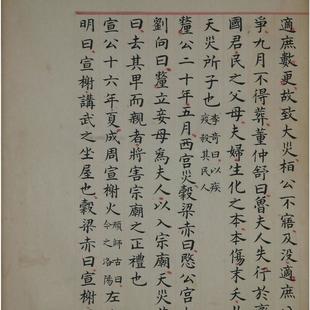 適庶數更故致大災桓公不寤及沒適庶
爭九月不得葬董仲舒曰魯夫人失行於
國君民之父母夫婦生化之本本傷末夭
天災所子也李奇曰以疾疫殺其民人
釐公二十年五月西宮災穀梁亦曰愍公宮
劉向曰釐立妾母為夫人以入宗廟天災
曰去其卑而親者將害宗廟之正禮也
宣公十六年夏成周宣榭火師古曰今之洛陽左
明曰宣榭講武之坐屋也穀梁亦曰宣榭